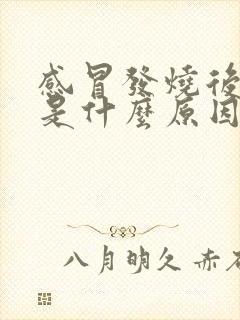 感冒發燒後
是什麼原因
八月明久 赤石